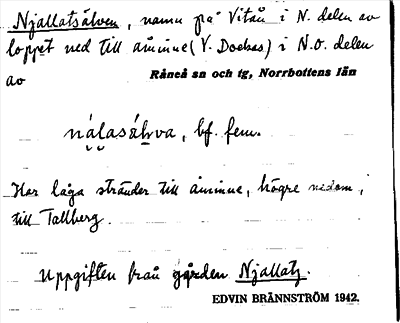 Njallatsälven, namn på Vitån i N. delen av
loppet ned till åminne (V. Docksas) i N.O. delen
av Råneå sn och tg, Norrbottens län
nálasáḥva, bf. fem.
Har låga stränder till åminne, högre nedom,
till Tallberg.
Uppgiften från gården Njallatz.
EDVIN BRÄNNSTRÖM 1942.